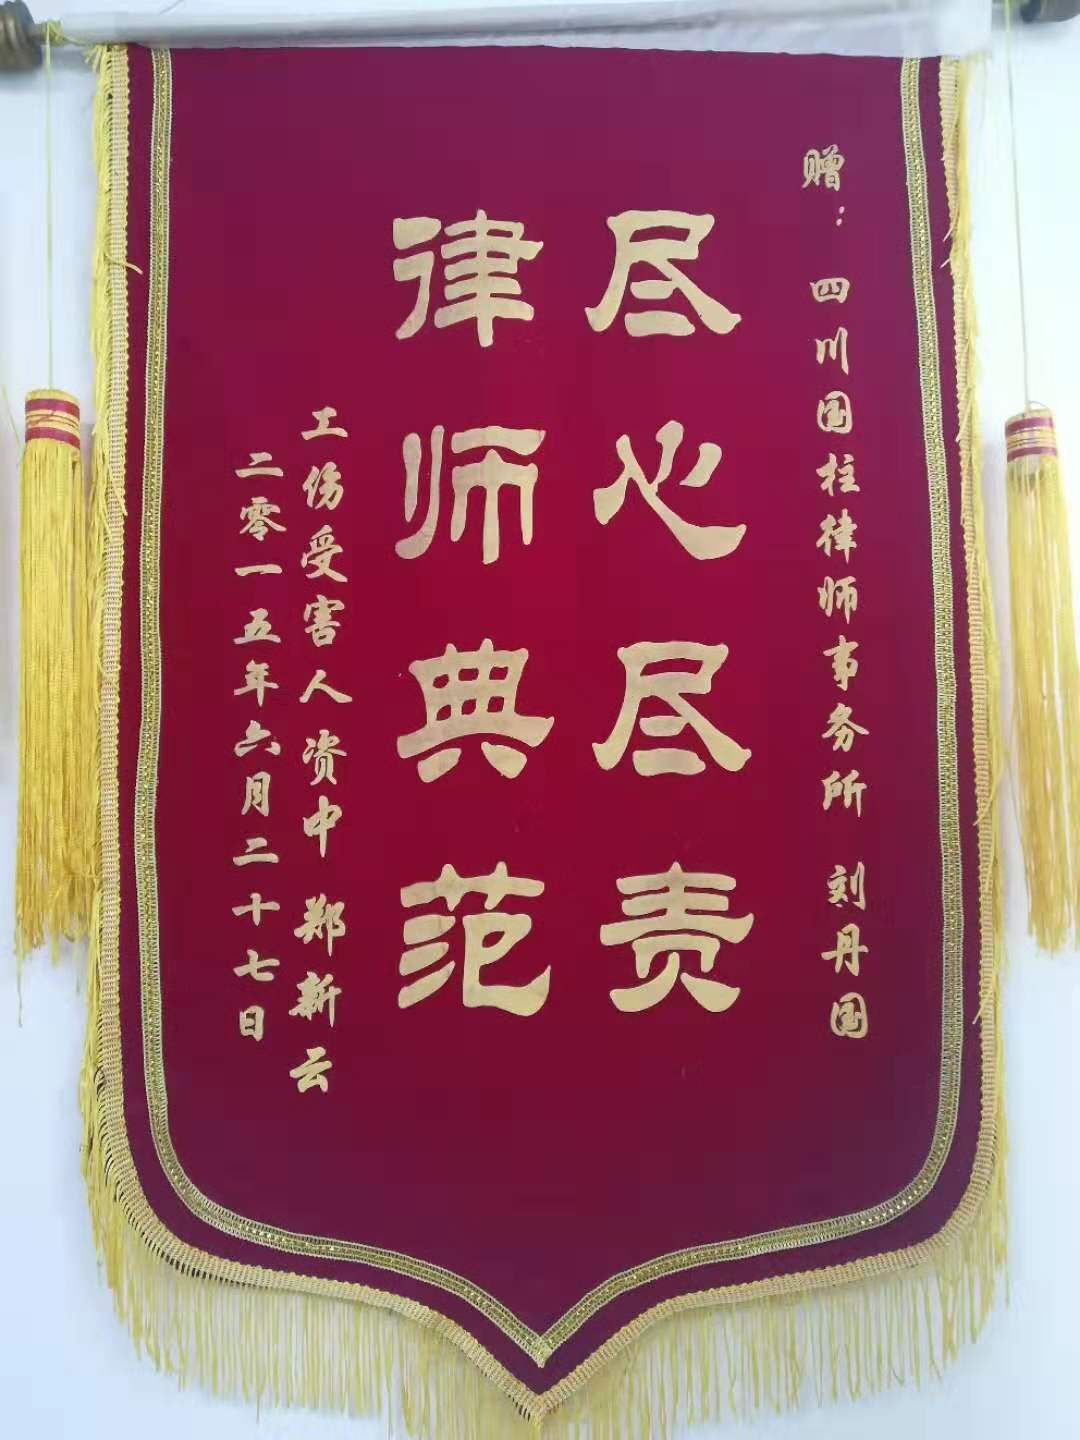 赠：四川国柱律师事务所 刘丹国
尽心尽责
律师典范
工伤受害人资中 郑新云
二零一五年六月二十七日